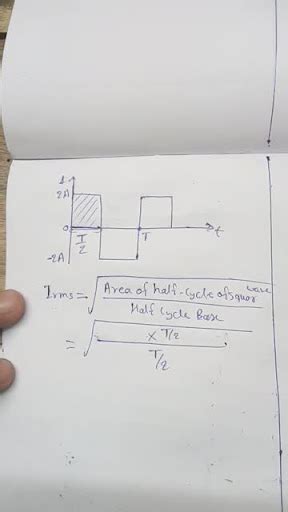 i
2A
0
T/2
T
t
-2A
Irms = √ Area of half-cycle of squar wave / Half cycle Base
= √ × T/2 / T/2